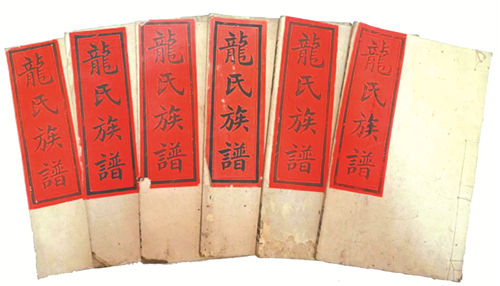 龍氏族譜
龍氏族譜
龍氏族譜
龍氏族譜
龍氏族譜
龍氏族譜